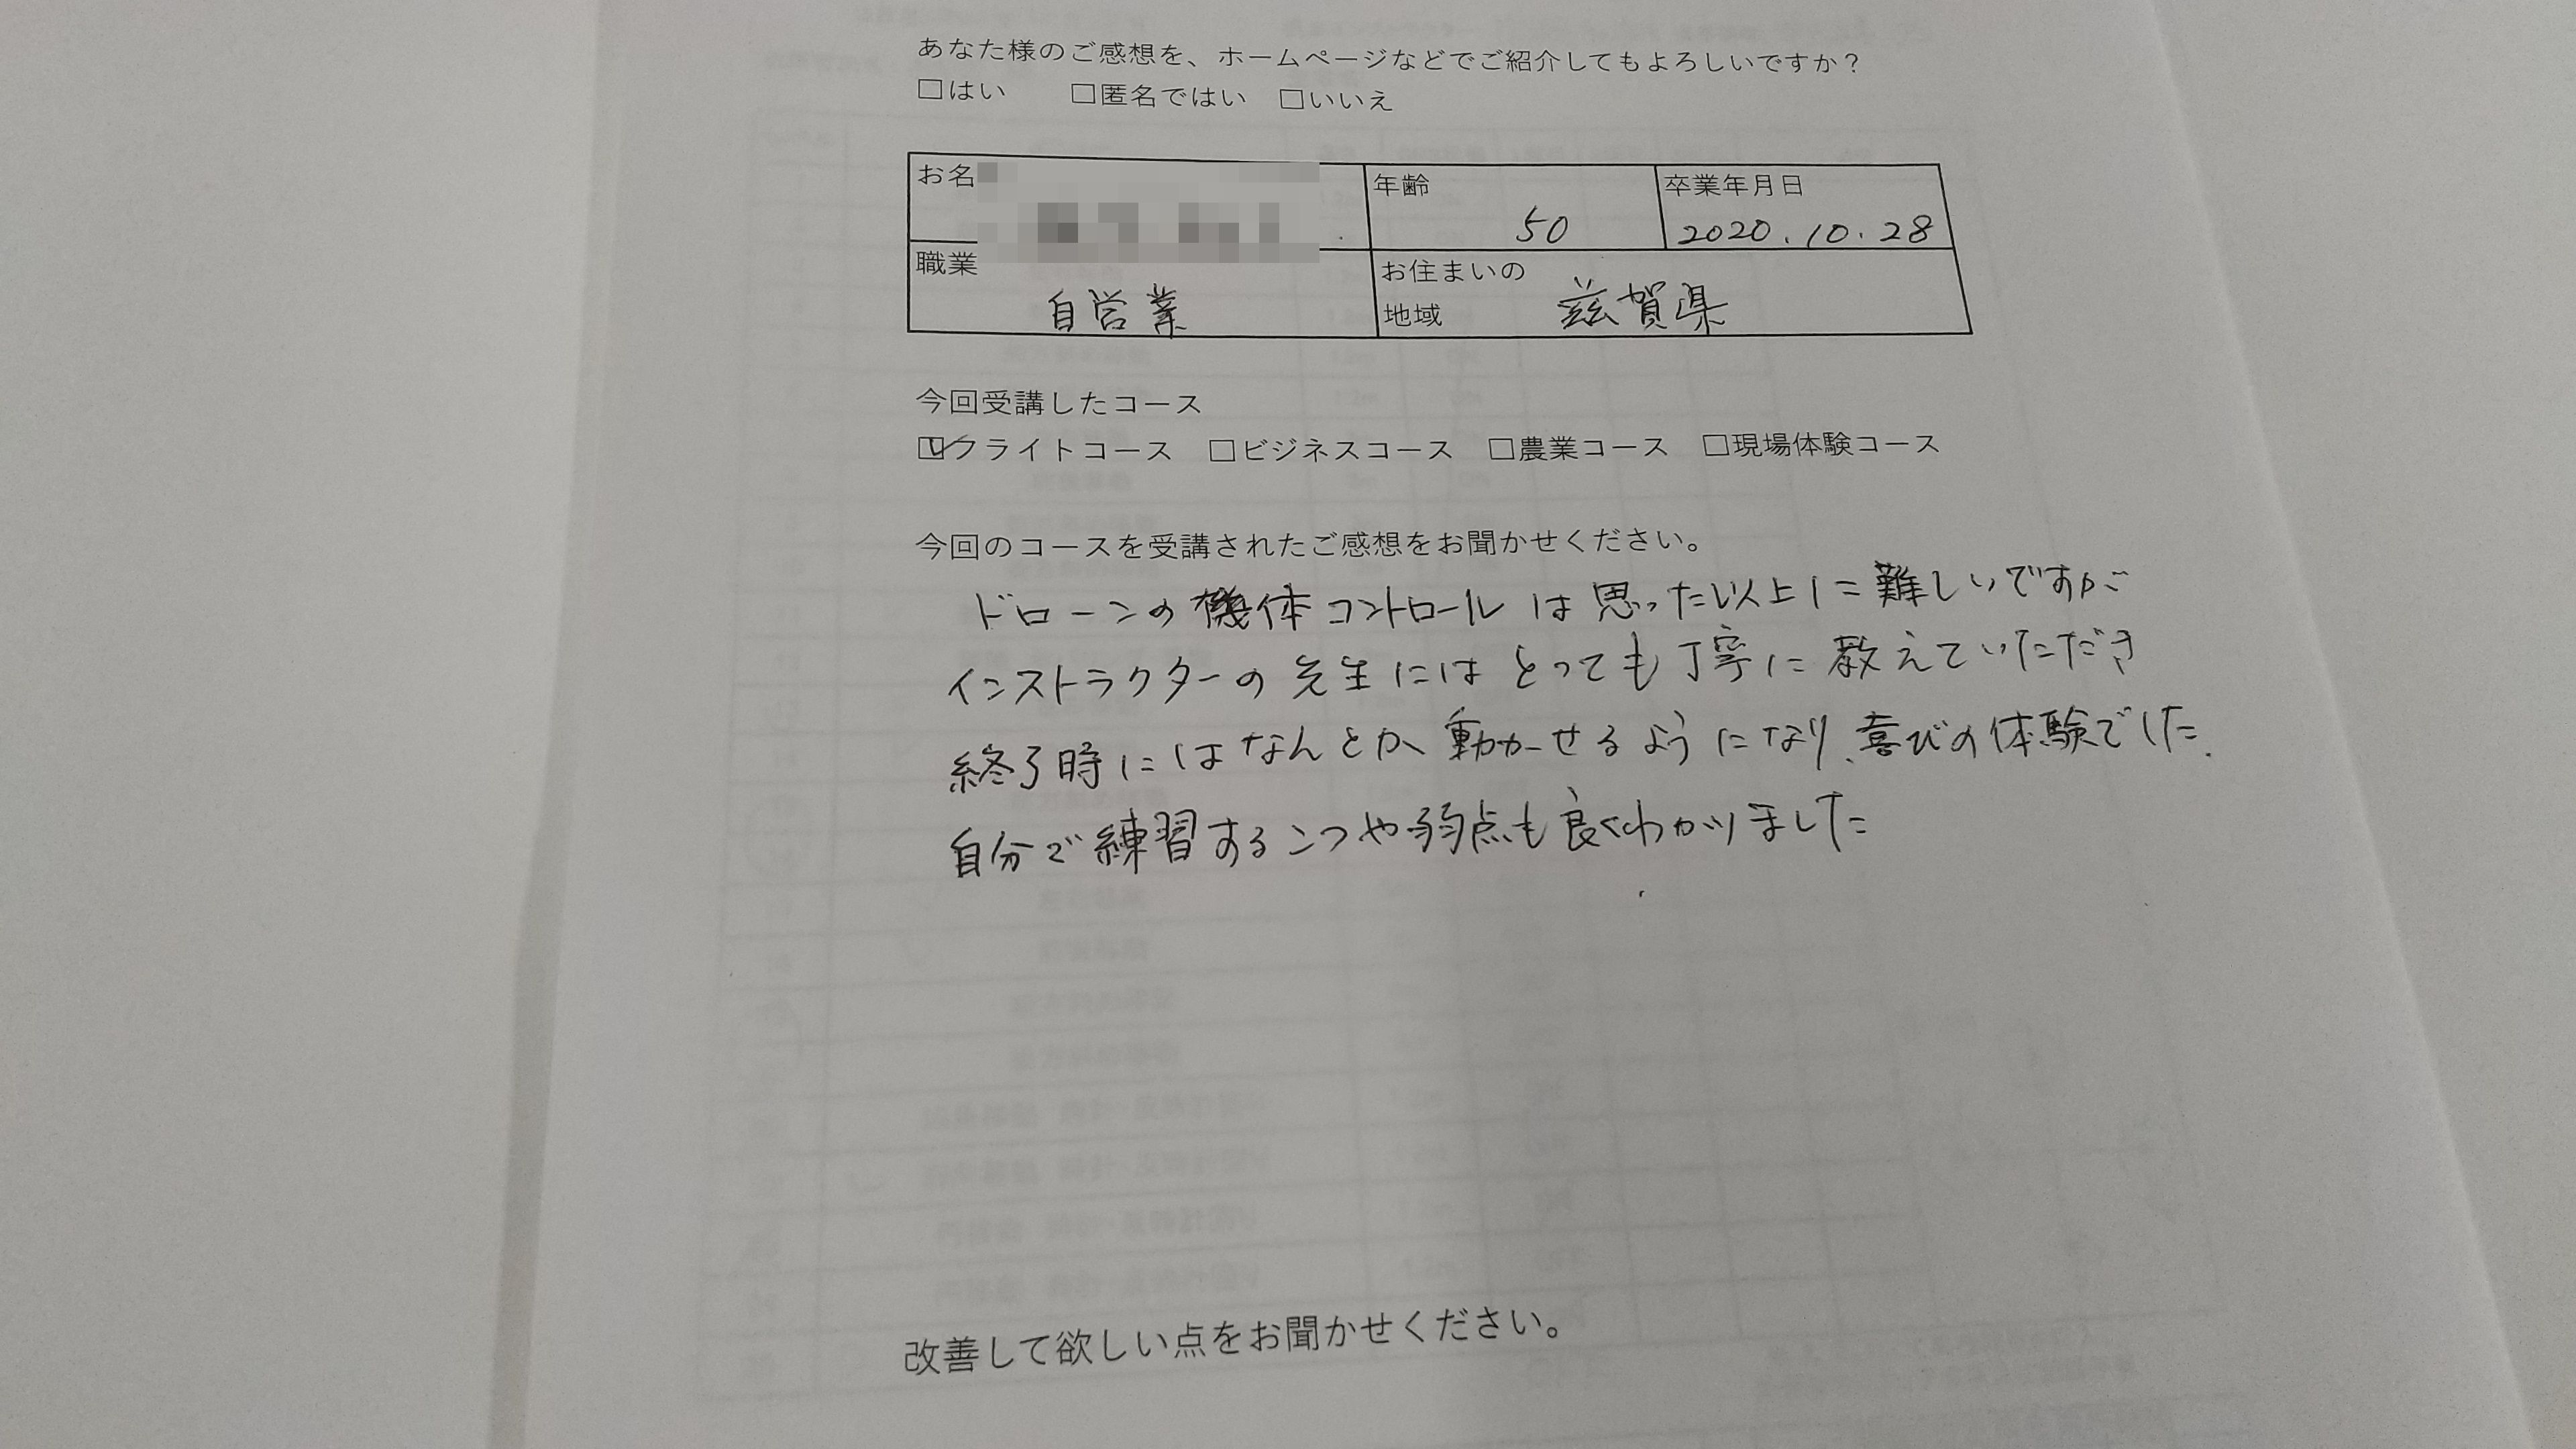 あなた様のご感想を、ホームページなどでご紹介してもよろしいですか？
□はい　□匿名ではい　□いいえ
お名
年齢
50
卒業年月日
2020.10.28
職業
自営業
お住まいの
地域
滋賀県
今回受講したコース
☑フライトコース　□ビジネスコース　□農業コース　□現場体験コース
今回のコースを受講されたご感想をお聞かせください。
ドローンの機体コントロールは思った以上に難しいですが
インストラクターの先生にはとっても丁寧に教えていただき
終了時にはなんとか動かせるようになり、喜びの体験でした.
自分で練習するコツや弱点も良くわかりました
改善して欲しい点をお聞かせください。